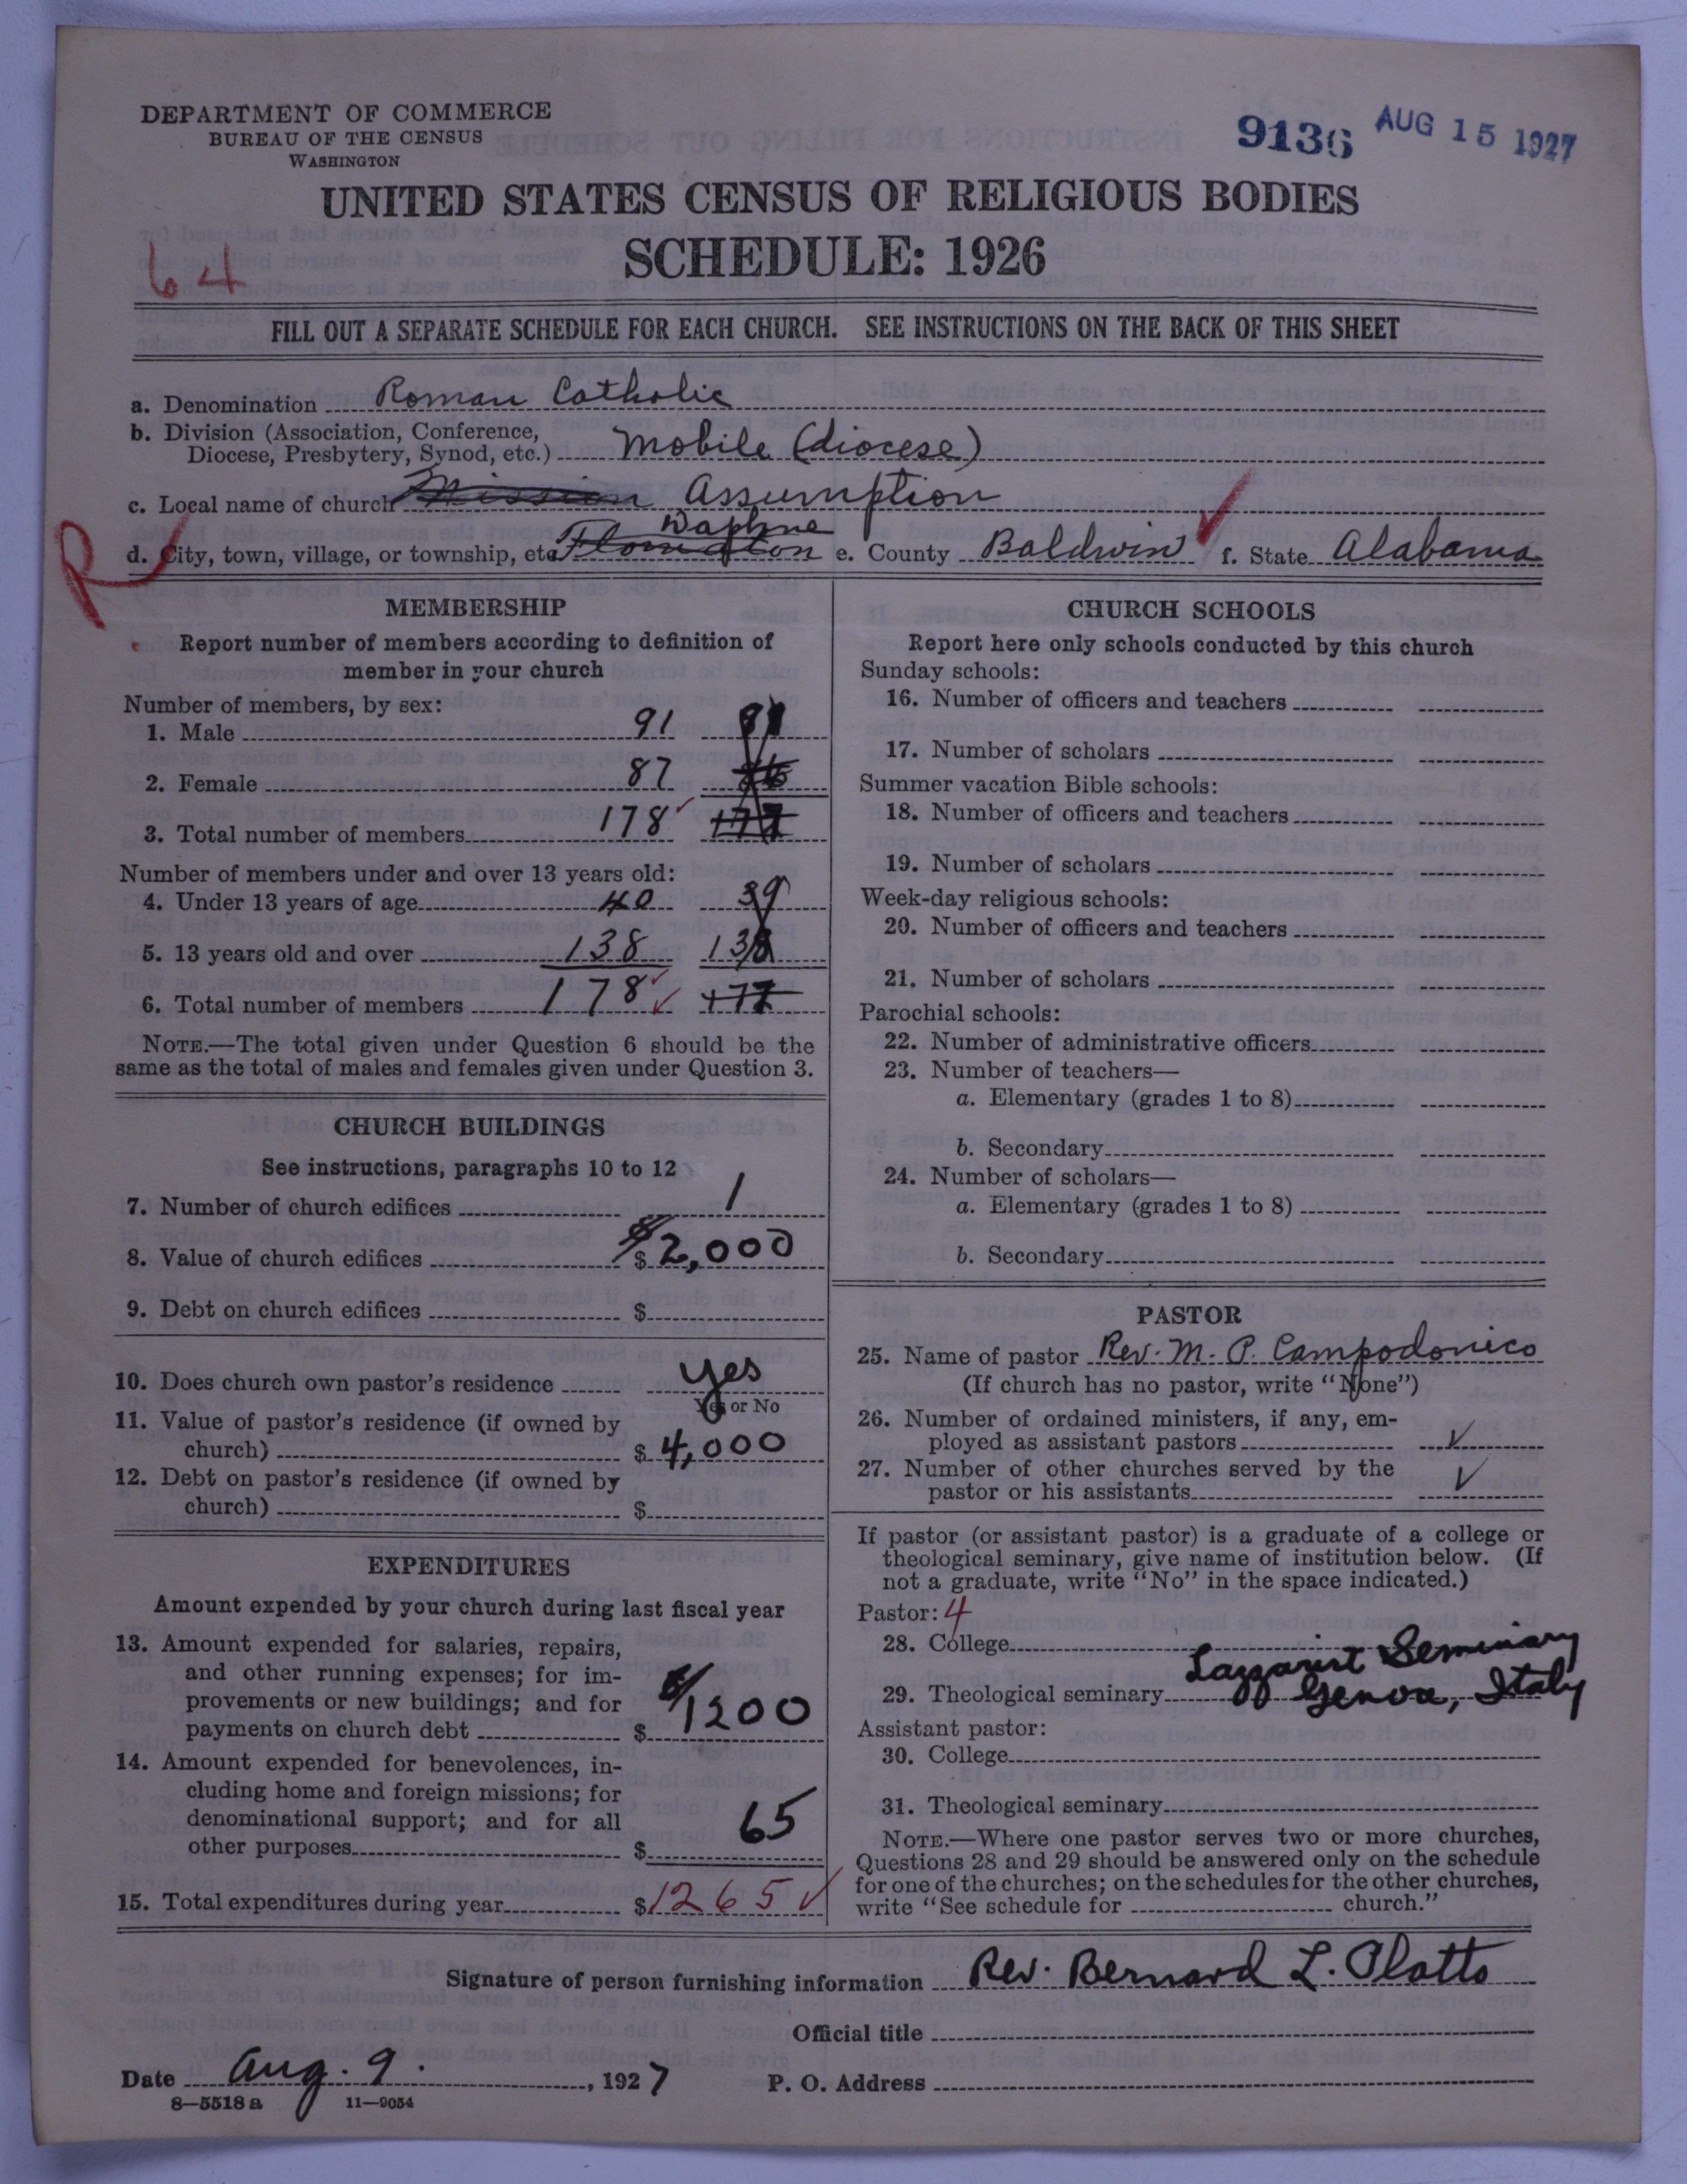 DEPARTMENT OF COMMERCE
BUREAU OF THE CENSUS
WASHINGTON
9136 AUG 15 1927
UNITED STATES CENSUS OF RELIGIOUS BODIES
SCHEDULE: 1926
64
FILL OUT A SEPARATE SCHEDULE FOR EACH CHURCH. SEE INSTRUCTIONS ON THE BACK OF THIS SHEET
a. Denomination Roman Catholic
b. Division (Association, Conference,
Diocese, Presbytery, Synod, etc.) Mobile (diocese)
c. Local name of church Mission Assumption
Daphne
d. City, town, village, or township, etc. Flomaton e. County Baldwin f. State Alabama
R
MEMBERSHIP
Report number of members according to definition of
member in your church
Number of members, by sex:
1. Male 91
2. Female 87
3. Total number of members 178 177
Number of members under and over 13 years old:
4. Under 13 years of age 40 39
5. 13 years old and over 138 138
6. Total number of members 178 177
NOTE.—The total given under Question 6 should be the
same as the total of males and females given under Question 3.
CHURCH BUILDINGS
See instructions, paragraphs 10 to 12
7. Number of church edifices 1
8. Value of church edifices $ $2,000
9. Debt on church edifices $
10. Does church own pastor's residence yes
Yes or No
11. Value of pastor's residence (if owned by
church) $ 4,000
12. Debt on pastor's residence (if owned by
church) $
EXPENDITURES
Amount expended by your church during last fiscal year
13. Amount expended for salaries, repairs,
and other running expenses; for im-
provements or new buildings; and for
payments on church debt $ $1200
14. Amount expended for benevolences, in-
cluding home and foreign missions; for
denominational support; and for all
other purposes $ 65
15. Total expenditures during year $ 1265
CHURCH SCHOOLS
Report here only schools conducted by this church
Sunday schools:
16. Number of officers and teachers
17. Number of scholars
Summer vacation Bible schools:
18. Number of officers and teachers
19. Number of scholars
Week-day religious schools:
20. Number of officers and teachers
21. Number of scholars
Parochial schools:
22. Number of administrative officers
23. Number of teachers—
a. Elementary (grades 1 to 8)
b. Secondary
24. Number of scholars—
a. Elementary (grades 1 to 8)
b. Secondary
PASTOR
25. Name of pastor Rev. M. P. Campodonico
(If church has no pastor, write "None")
26. Number of ordained ministers, if any, em-
ployed as assistant pastors ✓
27. Number of other churches served by the
pastor or his assistants ✓
If pastor (or assistant pastor) is a graduate of a college or
theological seminary, give name of institution below. (If
not a graduate, write "No" in the space indicated.)
Pastor: 4
28. College
Lazzarist Seminary
29. Theological seminary Genoa, Italy
Assistant pastor:
30. College
31. Theological seminary
NOTE.—Where one pastor serves two or more churches,
Questions 28 and 29 should be answered only on the schedule
for one of the churches; on the schedules for the other churches,
write "See schedule for church."
Signature of person furnishing information Rev. Bernard L. Plotts
Official title
Date Aug. 9. , 1927 P. O. Address
8—5518 a 11—9054